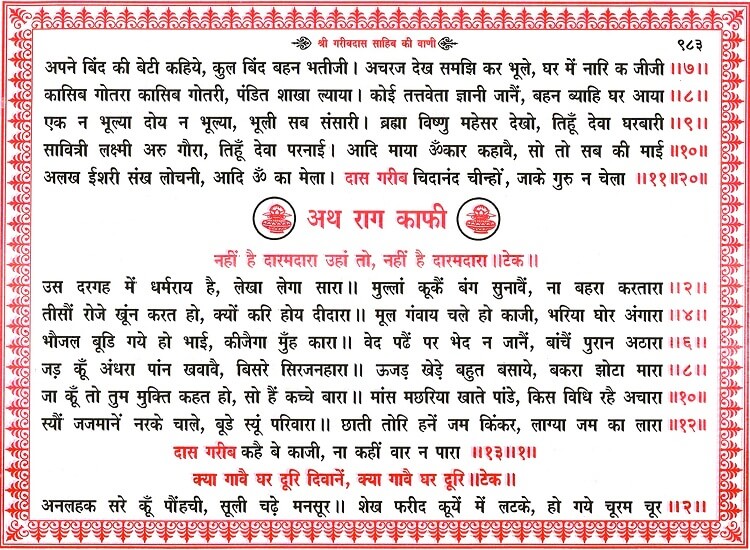 श्री गरीबदास साहिब की वाणी
९८३
अपने बिंद की बेटी कहिये, कुल बिंद बहन भतीजी। अचरज देख समझि कर भूले, घर में नारि क जीजी ॥७॥
कासिब गोतरा कासिब गोतरी, पंडित शाखा ल्याया। कोई तत्तवेता ज्ञानी जानैं, बहन ब्याहि घर आया ॥८॥
एक न भूल्या दोय न भूल्या, भूली सब संसारी। ब्रह्मा विष्णु महेसर देखो, तिहूँ देवा घरबारी ॥९॥
सावित्री लक्ष्मी अरु गौरा, तिहूँ देवा परनाई। आदि माया ॐकार कहावै, सो तो सब की माई ॥१०॥
अलख ईशरी संख लोचनी, आदि ॐ का मेला। दास गरीब चिदानंद चीन्हों, जाके गुरु न चेला ॥११॥२०॥
अथ राग काफी
नहीं है दारमदारा उहां तो, नहीं है दारमदारा ॥टेक॥
उस दरगह में धर्मराय है, लेखा लेगा सारा॥ मुल्लां कूकैं बंग सुनावैं, ना बहरा करतारा ॥२॥
तीसौं रोजे खूंन करत हो, क्यों करि होय दीदारा॥ मूल गंवाय चले हो काजी, भरिया घोर अंगारा ॥४॥
भौजल बूडि गये हो भाई, कीजैगा मुँह कारा॥ वेद पढैं पर भेद न जानैं, बांचैं पुरान अठारा ॥६॥
जड़ कूँ अंधरा पांन खवावै, बिसरे सिरजनहारा॥ ऊजड़ खेड़े बहुत बसाये, बकरा झोटा मारा ॥८॥
जा कूँ तो तुम मुक्ति कहत हो, सो हैं कच्चे बारा॥ मांस मछरिया खाते पांडे, किस विधि रहै अचारा ॥१०॥
स्यौं जजमानें नरके चाले, बूडे स्यूं परिवारा॥ छाती तोरि हनें जम किंकर, लाग्या जम का लारा ॥१२॥
दास गरीब कहै बे काजी, ना कहीं वार न पारा ॥१३॥१॥
क्या गावै घर दूरि दिवानें, क्या गावै घर दूरि ॥टेक॥
अनलहक सरे कूँ पौंहची, सूली चढ़े मनसूर॥ शेख फरीद कूयें में लटके, हो गये चूरम चूर ॥२॥